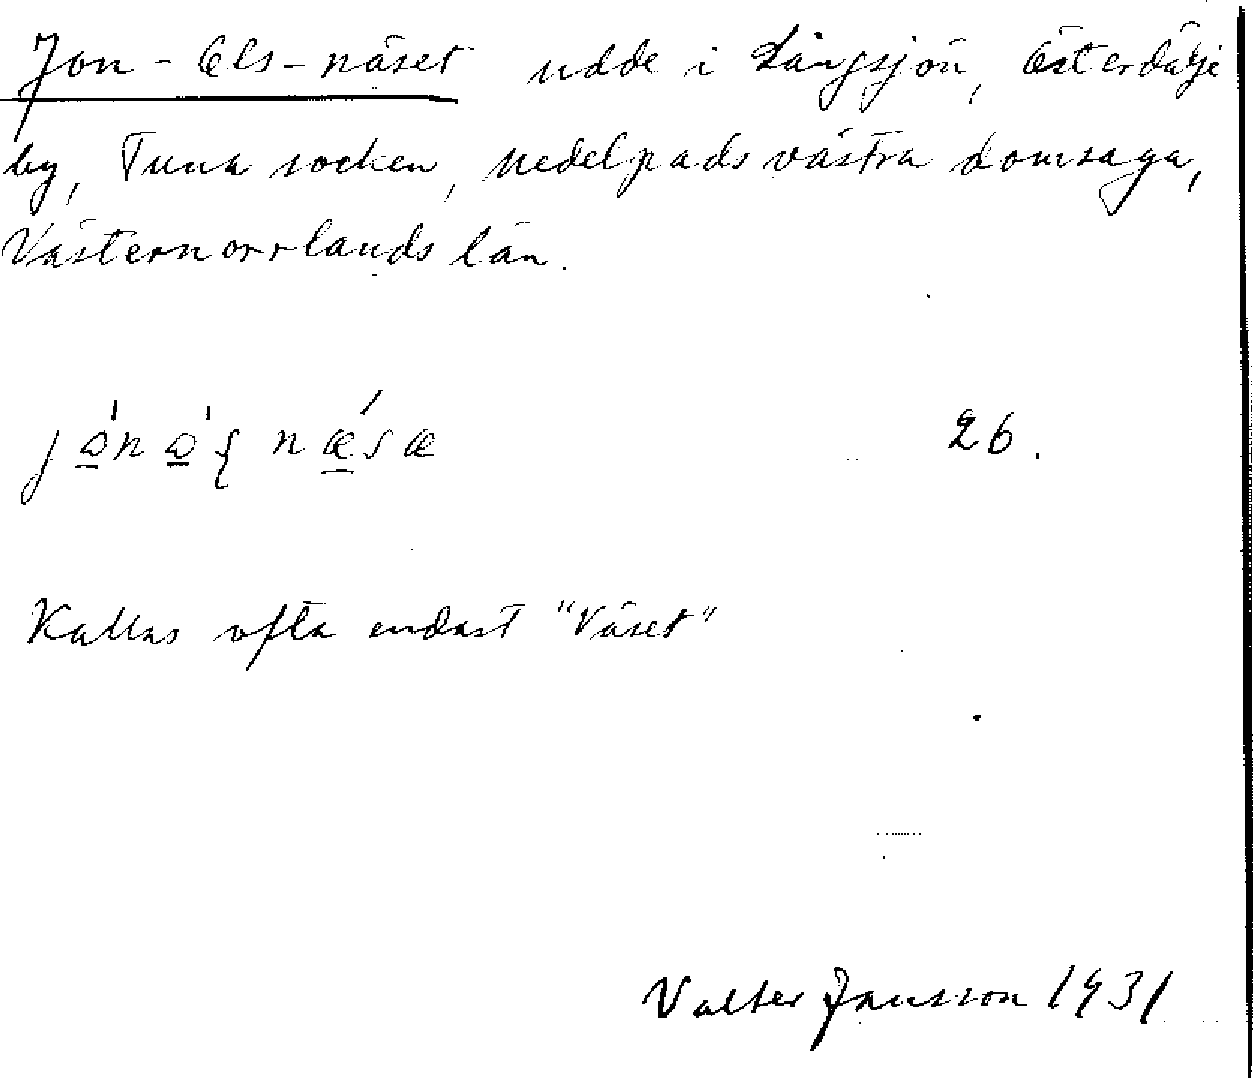 Jon-Ols-näset udde i Långsjön, Österdälje
by, Tuna socken, Medelpads västra domsaga,
Västernorrlands län.
26.
Kallas ofta endast "Näset"
Valter Jansson 1931